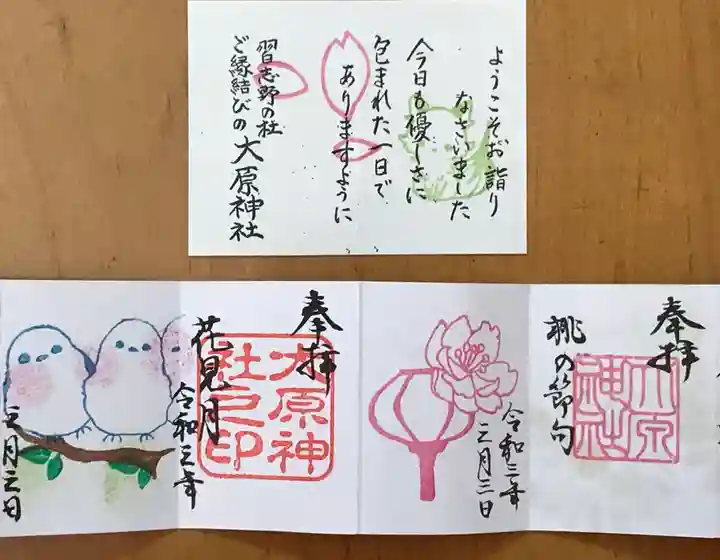 ようこそお詣り
なさいました
今日も優しさに
包まれた一日で
ありますように
習志野の杜
ご縁結びの大原神社
奉拝
大原神
社之印
花見月
令和三年
三月三日
奉拝
大原
神社
桃の節句
令和三年
三月三日